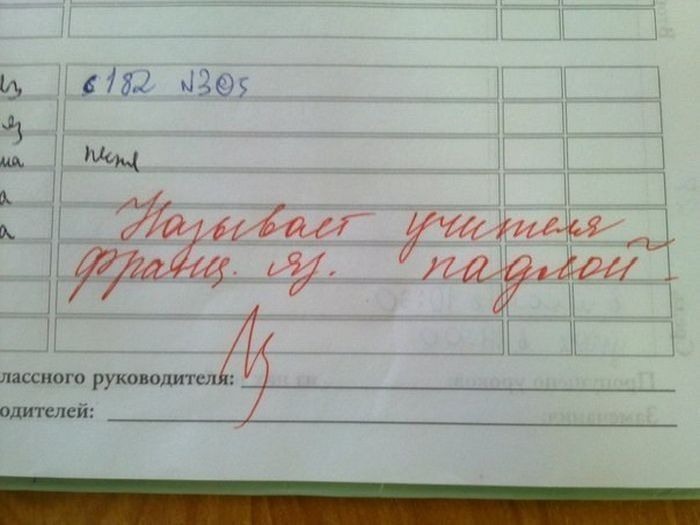 из с 182 №305
яз
ма песня
а
а Называет учителя
франц. яз. падлой
лассного руководителя:
одителей: